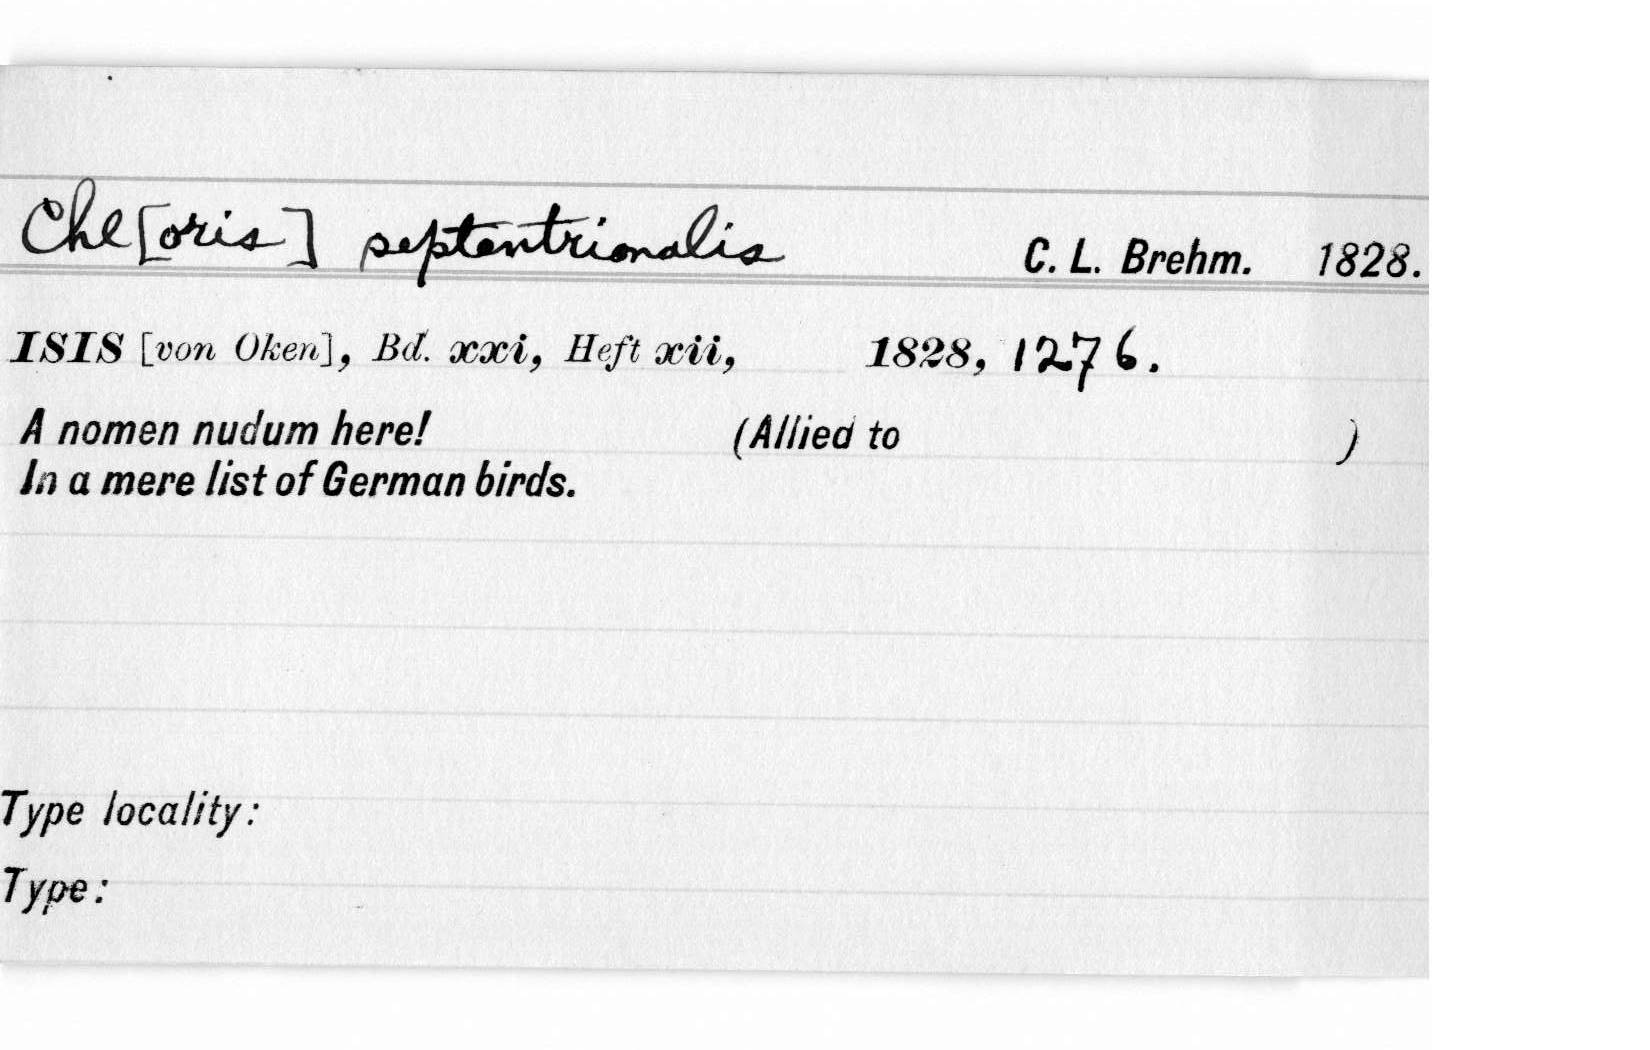 Chl[oris] septentrionalis C. L. Brehm. 1828.
ISIS [von Oken], Bd. xxi, Heft xii, 1828, 1276.
A nomen nudum here! (Allied to )
In a mere list of German birds.
Type locality:
Type: